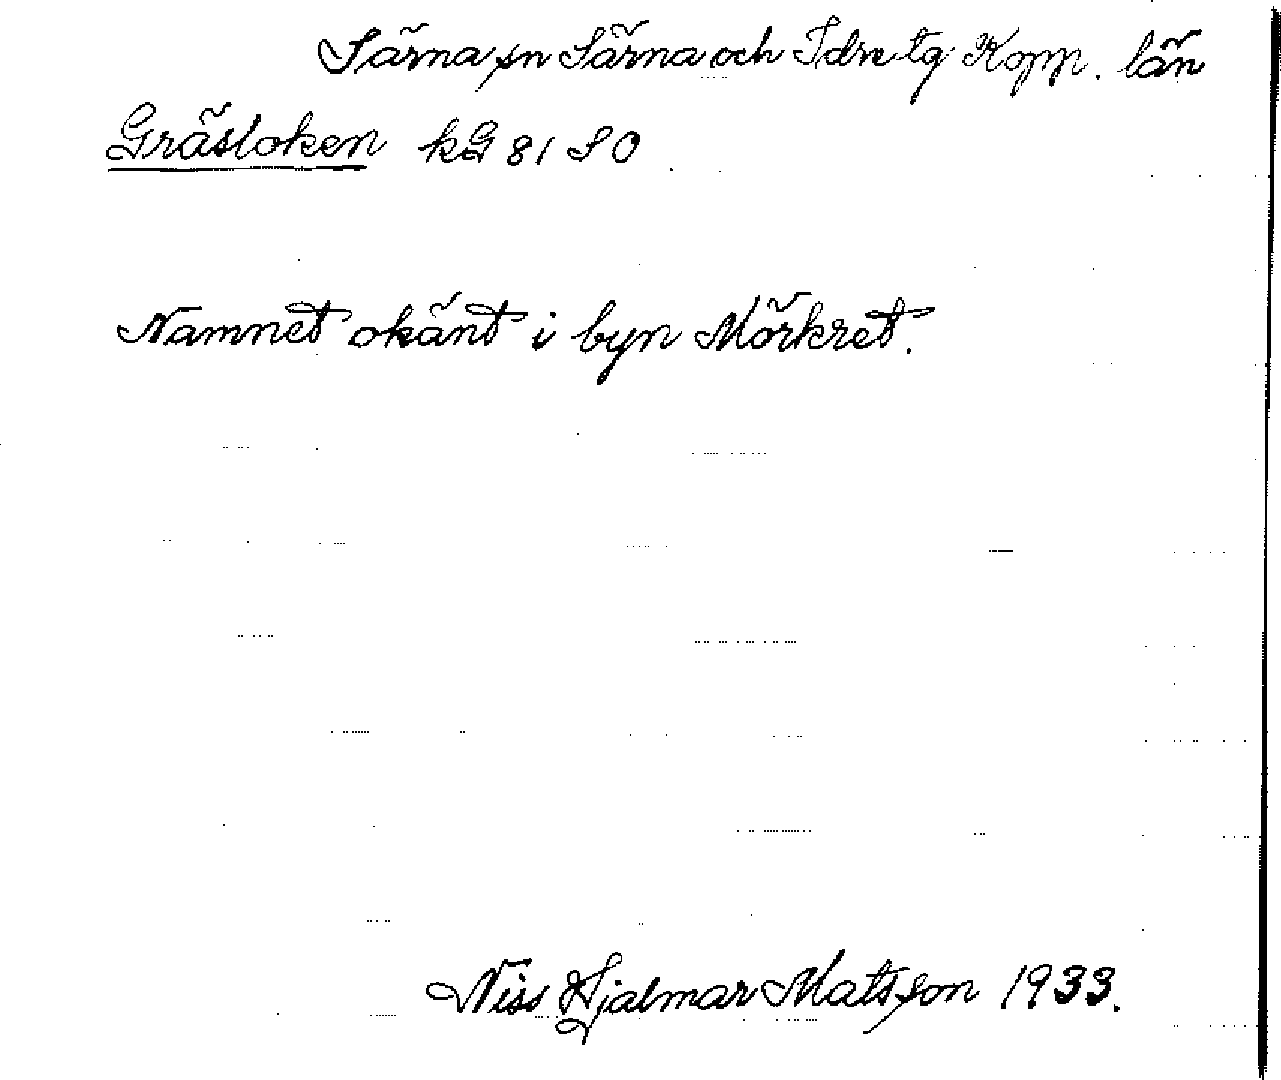 Särna sn Särna och Idre tg Kopp. län
Gräsloken kG 81 SO
Namnet okänt i byn Mörkret.
Niss Hjalmar Matsson 1933.